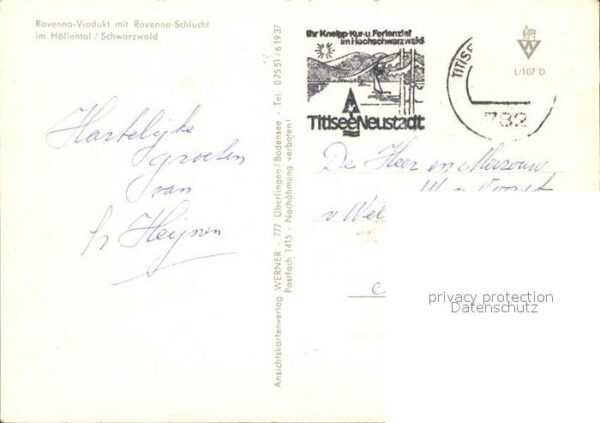 Ravenna-Viadukt mit Ravenna-Schlucht
im Höllental / Schwarzwald
Hartelijke
groeten
van
Heijnen
Ansichtskartenverlag WERNER - 777 Überlingen/Bodensee - Tel. 07551/61937
Postfach 1415 - Nachahmung verboten!
Ihr Kneipp-Kur-u. Ferienziel
im Hochschwarzwald
Titisee Neustadt
TITISE
782
W
L/107 D
Die Heer en Mevrouw
v
privacy protection
Datenschutz